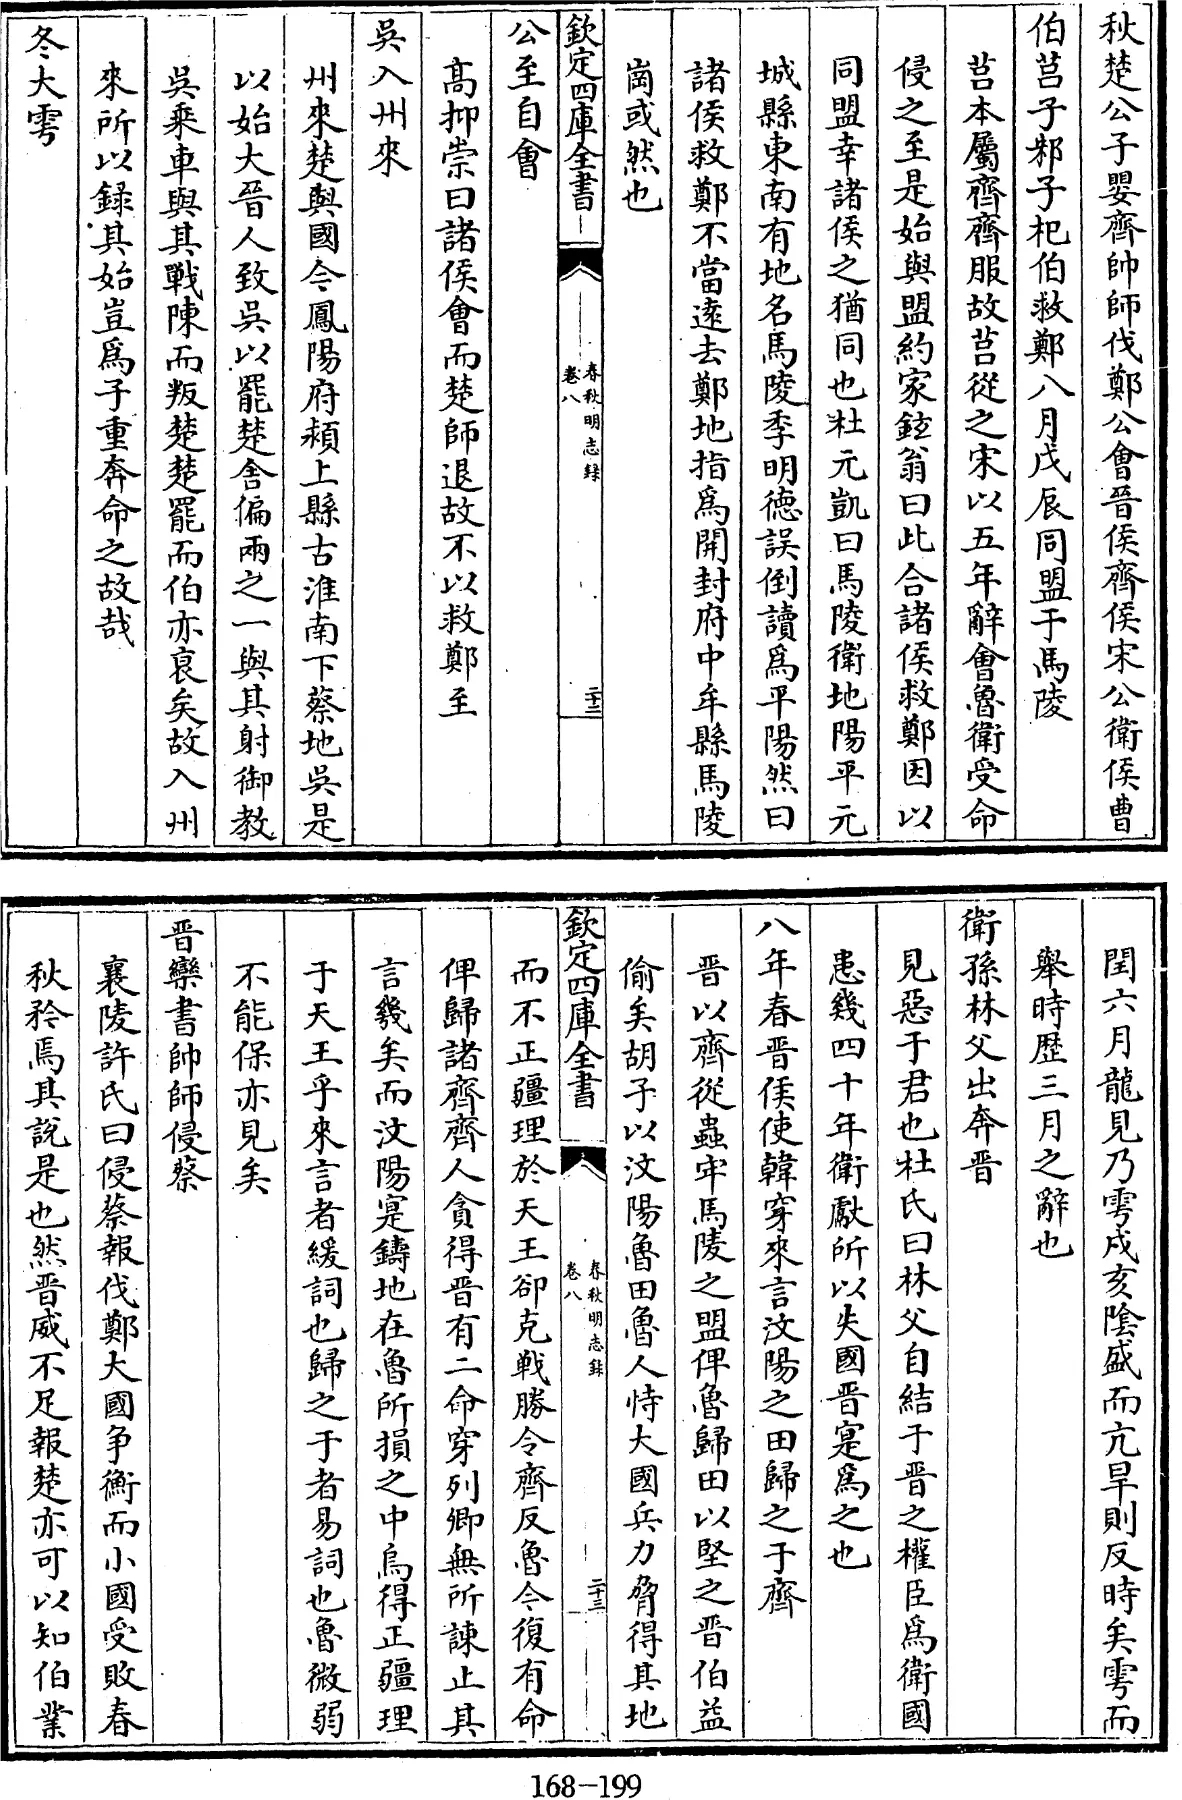 秋楚公子嬰齊帥師伐鄭公會晉侯齊侯宋公衛侯曹
伯莒子邾子杞伯救鄭八月戊辰同盟于馬陵
莒本屬齊齊服故莒從之宋以五年辭會魯衛受命
侵之至是始與盟約家鉉翁曰此合諸侯救鄭因以
同盟幸諸侯之猶同也杜元凱曰馬陵衛地陽平元
城縣東南有地名馬陵季明德誤倒讀爲平陽然曰
諸侯救鄭不當逺去鄭地指爲開封府中牟縣馬陵
崗或然也
欽定四庫全書
春秋明志錄
卷八
二十二
公至自會
髙抑崇曰諸侯會而楚師退故不以救鄭至
吳入州來
州來楚與國今鳳陽府潁上縣古淮南下蔡地吳是
以始大晉人致吳以罷楚舍偏兩之一與其射御教
吳乗車與其戰陳而叛楚楚罷而伯亦哀矣故入州
來所以録其始豈爲子重奔命之故哉
冬大雩
閏六月龍見乃雩戌亥隂盛而亢旱則反時矣雩而
舉時歴三月之辭也
衛孫林父出奔晉
見惡于君也杜氏曰林父自結于晉之權臣爲衛國
患幾四十年衛獻所以失國晉寔爲之也
八年春晉侯使韓穿來言汶陽之田歸之于齊
晉以齊從蟲牢馬陵之盟俾魯歸田以堅之晉伯益
偷矣胡子以汶陽魯田魯人恃大國兵力脅得其地
欽定四庫全書
春秋明志錄
卷八
二十三
而不正疆理於天王郤克戰勝令齊反魯今復有命
俾歸諸齊齊人貪得晉有二命穿列卿無所諫止其
言幾矣而汶陽寔鑄地在魯所損之中烏得正疆理
于天王乎來言者緩詞也歸之于者易詞也魯微弱
不能保亦見矣
晉欒書帥師侵蔡
襄陵許氏曰侵蔡報伐鄭大國争衡而小國受敗春
秋矜焉其説是也然晉威不足報楚亦可以知伯業
168-199